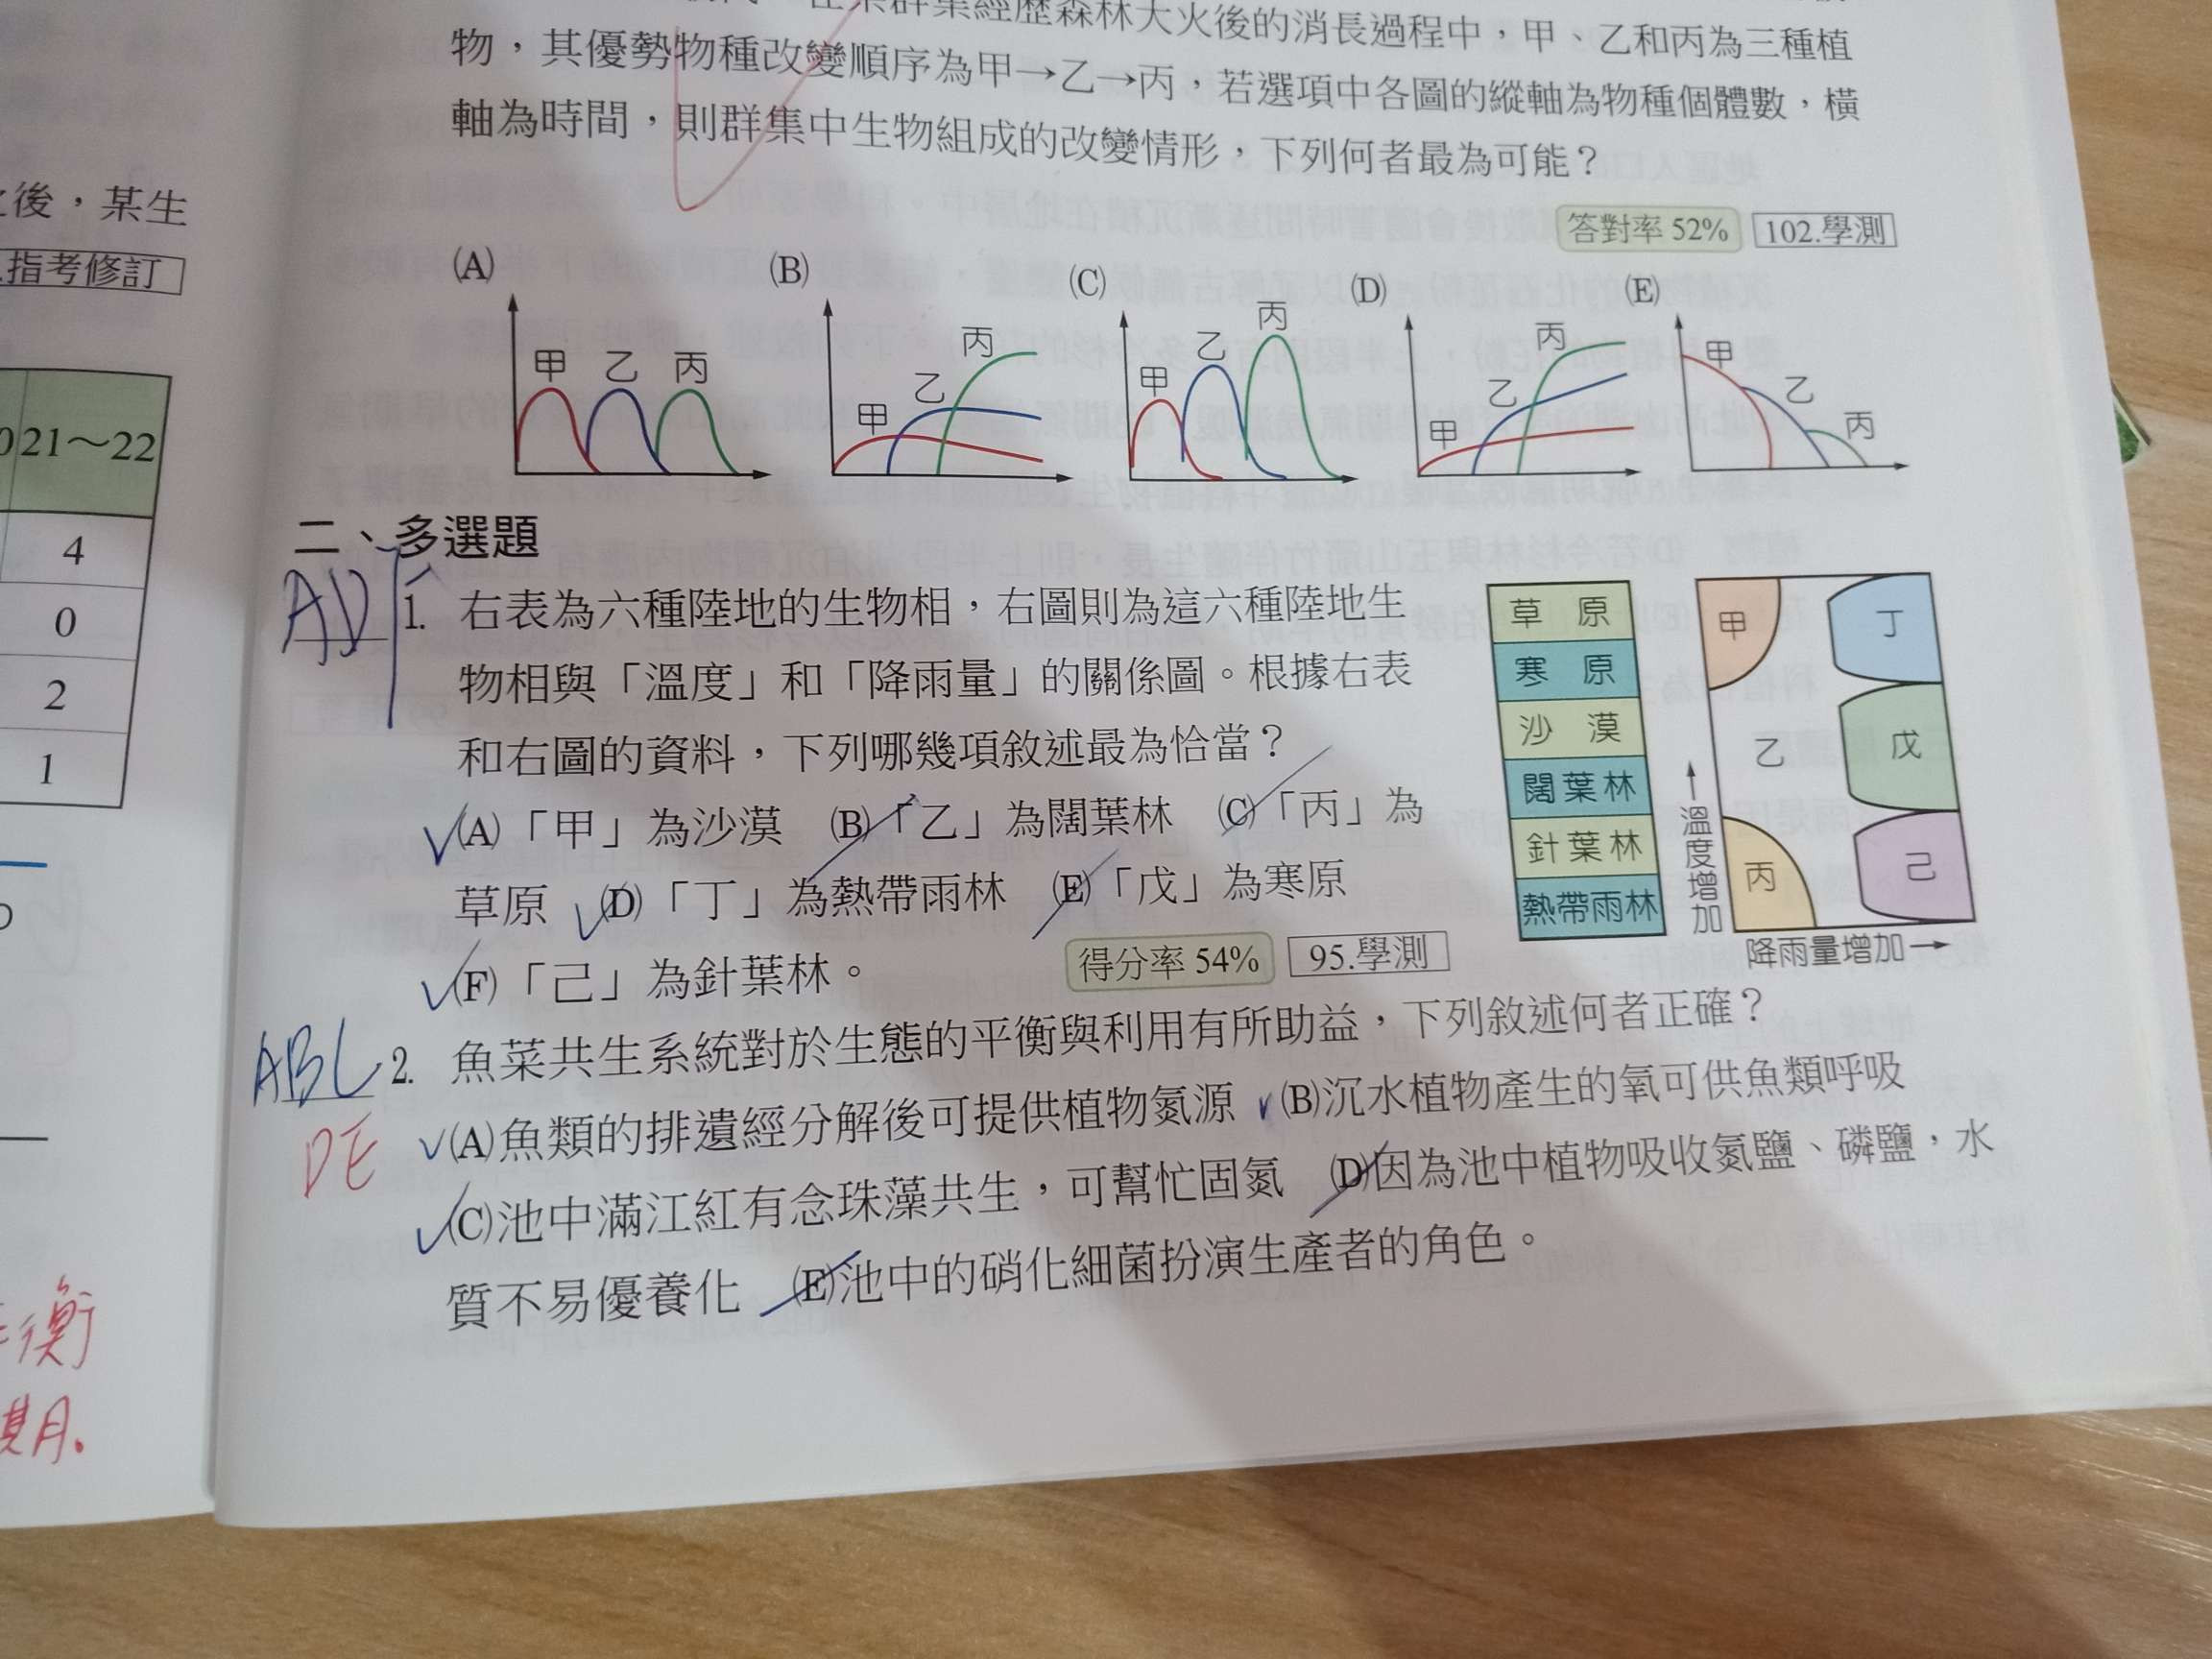 群集經歷森林大火後的消長過程中，甲、乙和丙為三種植
物，其優勢物種改變順序為甲→乙→丙，若選項中各圖的縱軸為物種個體數，橫
軸為時間，則群集中生物組成的改變情形，下列何者最為可能？
答對率 52% 102.學測
(A) (B) (C) (D) (E)
甲 乙 丙
甲 乙 丙
甲 乙 丙
甲 乙 丙
甲 乙 丙
二、多選題
1. 右表為六種陸地的生物相，右圖則為這六種陸地生
物相與「溫度」和「降雨量」的關係圖。根據右表
和右圖的資料，下列哪幾項敘述最為恰當？
(A)「甲」為沙漠 (B)「乙」為闊葉林 (C)「丙」為
草原 (D)「丁」為熱帶雨林 (E)「戊」為寒原
(F)「己」為針葉林。
得分率 54% 95.學測
草原
寒原
沙漠
闊葉林
針葉林
熱帶雨林
甲 丁
乙 戊
丙 己
溫度增加
降雨量增加→
ABC
DE
2. 魚菜共生系統對於生態的平衡與利用有所助益，下列敘述何者正確？
(A)魚類的排遺經分解後可提供植物氮源 (B)沉水植物產生的氧可供魚類呼吸
(C)池中滿江紅有念珠藻共生，可幫忙固氮 (D)因為池中植物吸收氮鹽、磷鹽，水
質不易優養化 (E)池中的硝化細菌扮演生產者的角色。
後，某生
指考修訂
21～22
4
0
2
1
衡
期。